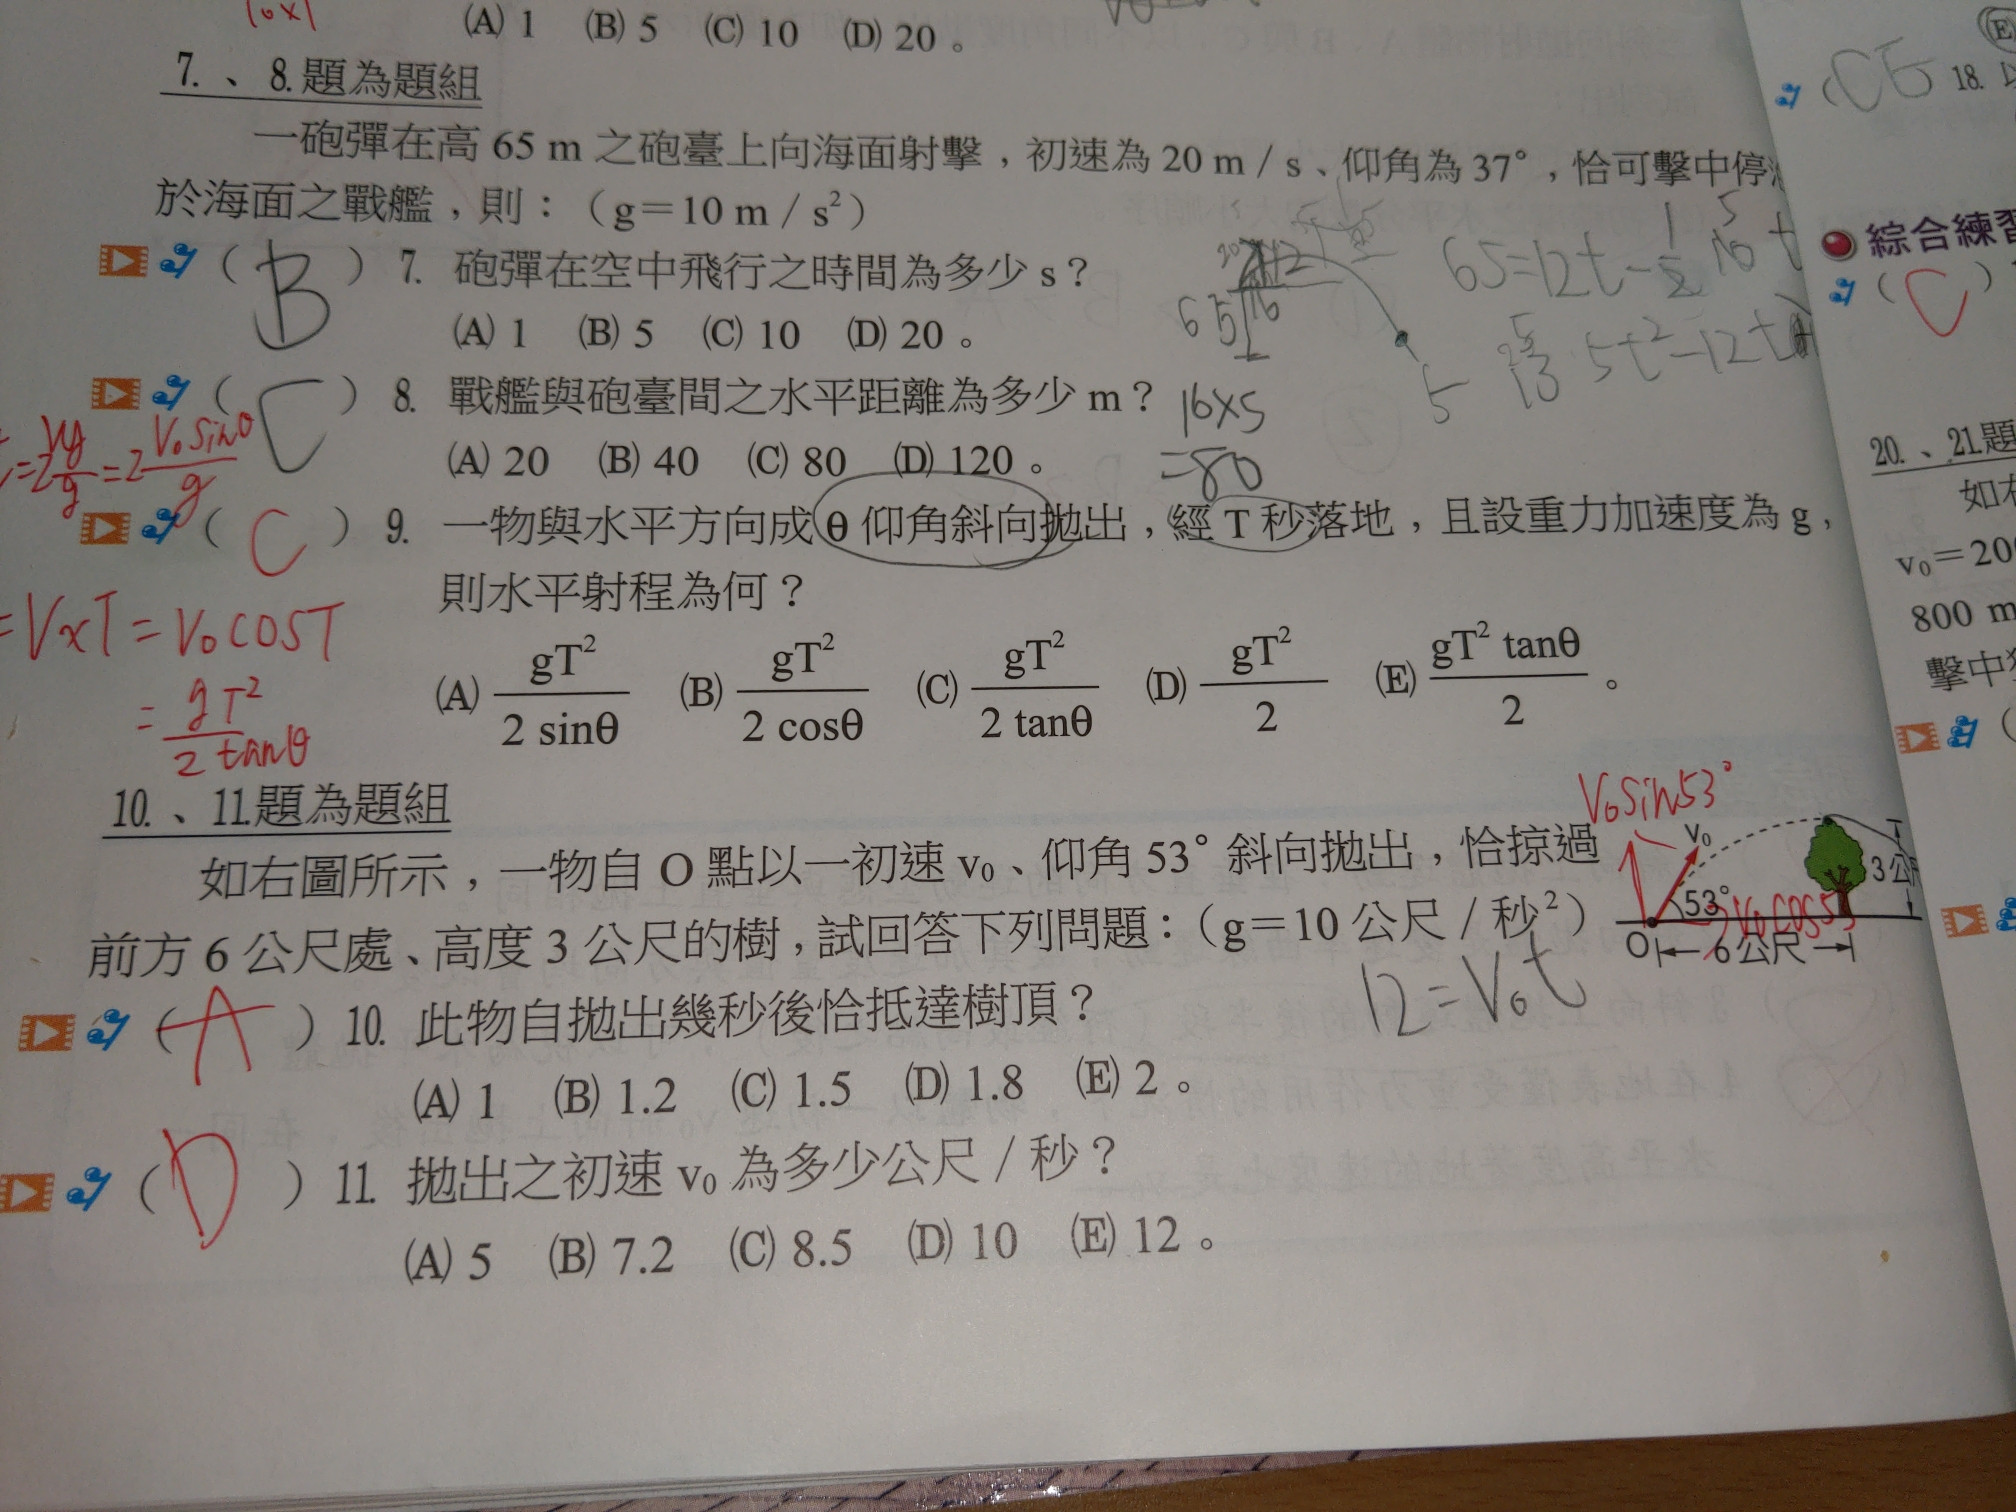 10×1
(A) 1 (B) 5 (C) 10 (D) 20。
7.、8.題為題組
一砲彈在高 65 m 之砲臺上向海面射擊，初速為 20 m / s、仰角為 37°，恰可擊中停
於海面之戰艦，則：（g＝10 m / s²）
(B) 7. 砲彈在空中飛行之時間為多少 s？
(A) 1 (B) 5 (C) 10 (D) 20。
65=12t-1/2 10 t
5t²-12t
65
16
5
(C) 8. 戰艦與砲臺間之水平距離為多少 m？
(A) 20 (B) 40 (C) 80 (D) 120。
16×5
=80
=2Vy/g=2V₀sinθ/g
(C) 9. 一物與水平方向成 θ 仰角斜向拋出，經 T 秒落地，且設重力加速度為 g，
則水平射程為何？
(A) gT²/2 sinθ (B) gT²/2 cosθ (C) gT²/2 tanθ (D) gT²/2 (E) gT² tanθ/2。
=VxT=V₀COST
=gT²/2 tanθ
10.、11.題為題組
如右圖所示，一物自 O 點以一初速 v₀、仰角 53° 斜向拋出，恰掠過
前方 6 公尺處、高度 3 公尺的樹，試回答下列問題：（g＝10 公尺 / 秒²）
V₀sin53°
v₀
3 公
53°
V₀cos53
O
6 公尺
12=V₀t
(A) 10. 此物自拋出幾秒後恰抵達樹頂？
(A) 1 (B) 1.2 (C) 1.5 (D) 1.8 (E) 2。
(D) 11. 拋出之初速 v₀ 為多少公尺 / 秒？
(A) 5 (B) 7.2 (C) 8.5 (D) 10 (E) 12。
(E)
(CE) 18.
綜合練習
(C)
20.、21.題
如右
v₀＝200
800 m
擊中